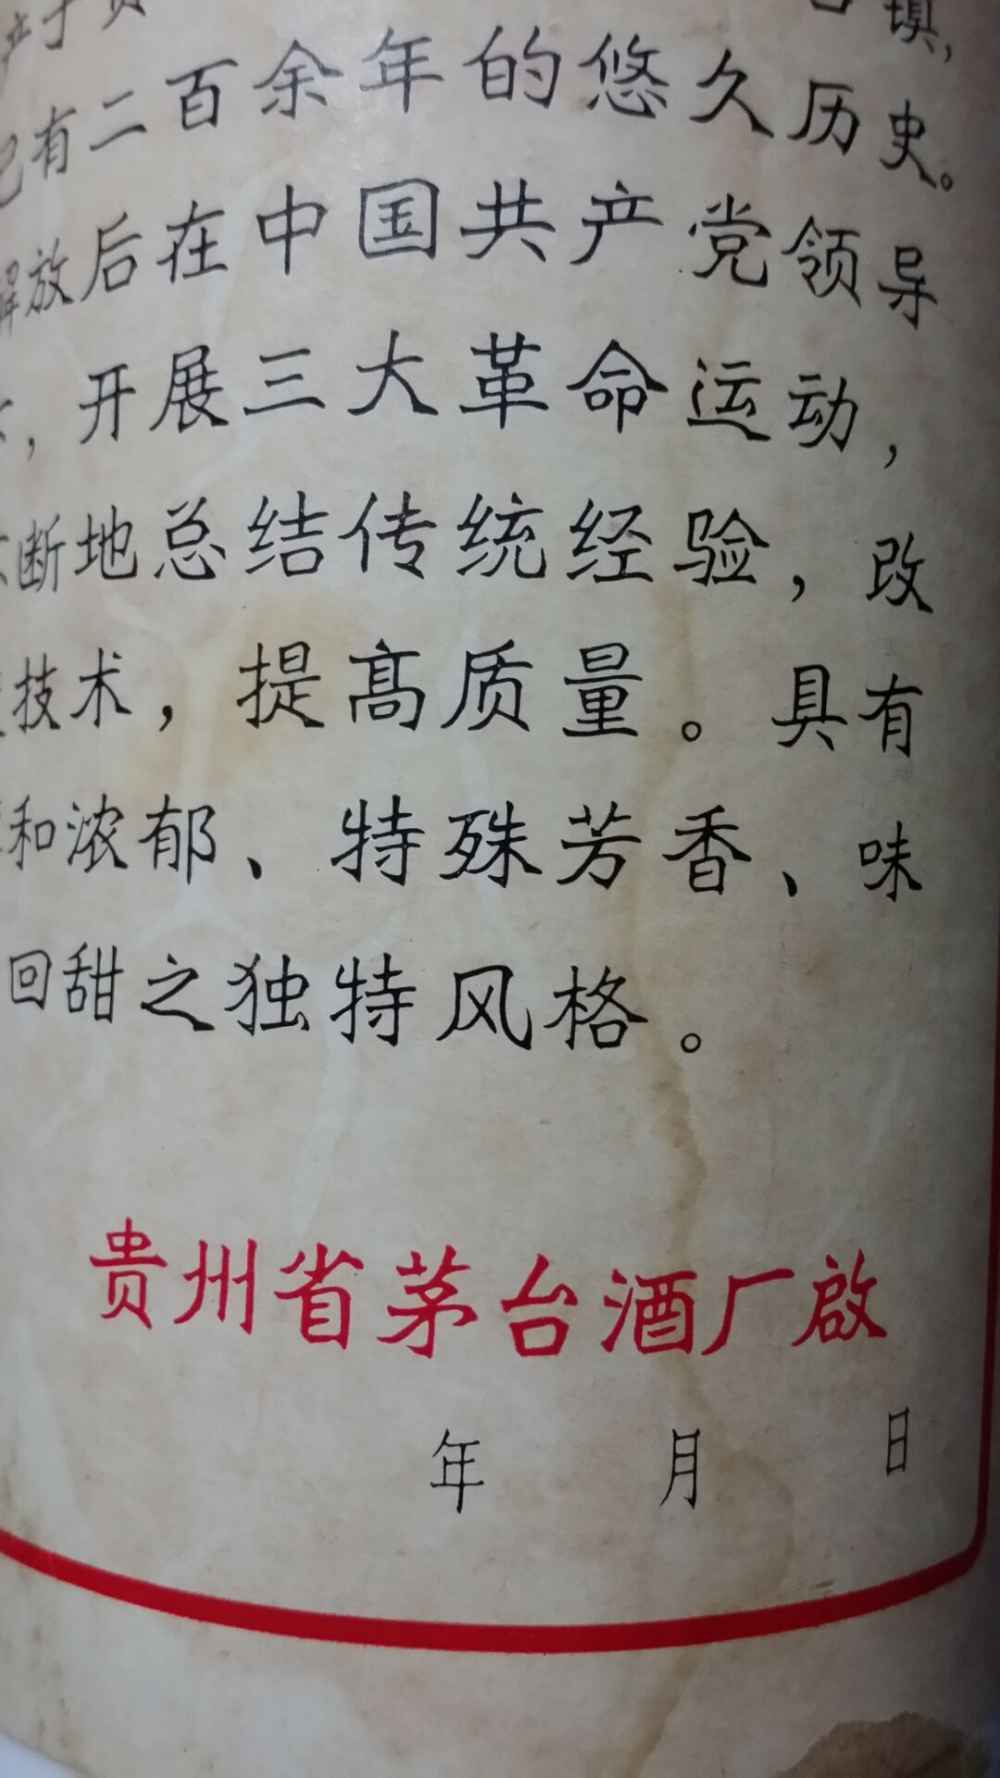 产于贵
镇,
已有二百余年的悠久历史。
解放后在中国共产党领导
,开展三大革命运动,
断地总结传统经验,改
技术,提高质量。具有
和浓郁、特殊芳香、味
回甜之独特风格。
贵州省茅台酒厂啟
年 月 日